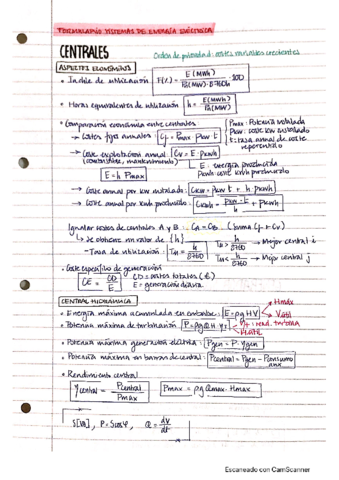 FORMULARIO SISTEMAS DE ENERGÍA ELÉCTRICA
CENTRALES
Orden de prioridad: costes variables crecientes
ASPECTOS ECONÓMICOS
• Índice de utilización: I(%) = E(MWh) / Pn(MW)·8760h · 100
• Horas equivalentes de utilización h = E(MWh) / Pn(MW)
• Comparación económica entre centrales
→ Costes fijos anuales: Cf = Pmax Pkw t
Pmax = Potencia instalada
Pkw = coste kW instalado
t = tasa anual de coste
→ Coste explotación anual: Cv = E Pkwh
(combustible, mantenimiento)
E = h Pmax
E = energía producida
Pkwh = coste kWh producido
→ Coste anual por kW instalado: Ckw = Pkw t + h Pkwh
→ Coste anual por kWh producido: Ckwh = Pkw·t / h + Pkwh
Igualar costes de centrales A y B: CA = CB (suma Cf + Cv)
↳ Se obtiene un valor de {h}
- Tasa de utilización: Tu = h / 8760
Tu > h / 8760 → Mejor central i
Tu < h / 8760 → Mejor central j
• Coste específico de generación
CE = CD / E
CD = costes totales (€)
E = generación diaria
CENTRAL HIDRÁULICA
• Energía máxima acumulada en embalse: E = ρgHV
Hmax
Vútil
• Potencia máxima de turbinación P = ρgQH ηt
ηt = rend. turbina
• Potencia máxima generador eléctrico: Pgen = P·ηgen
• Potencia máxima en barras de central: Pcentral = Pgen - Pconsumo aux
• Rendimiento central
ηcentral = Pcentral / Pmax
Pmax = ρg Qmax · Hmax
S[VA], P = S cosφ, Q = dV / dt
Escaneado con CamScanner